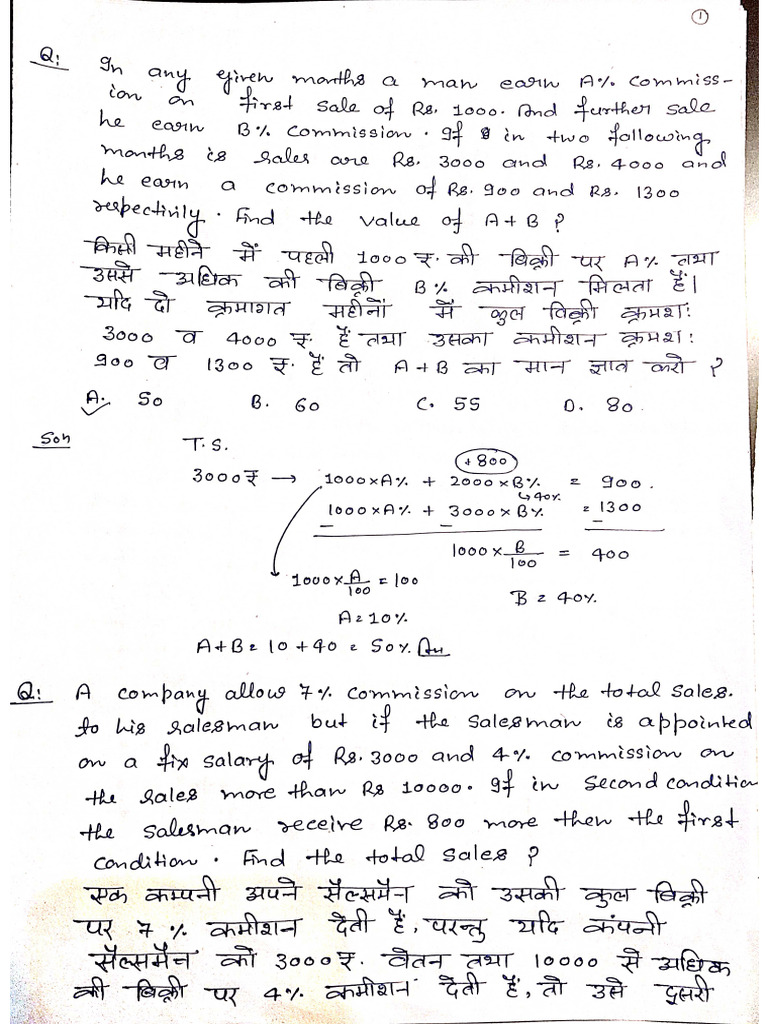 1
Q: In any given months a man earn A% commiss-
ion on first sale of Rs. 1000. And further sale
he earn B% commission. If in two following
months is sales are Rs. 3000 and Rs. 4000 and
he earn a commission of Rs. 900 and Rs. 1300
respectivily. Find the value of A+B ?
किसी महीने में पहली 1000 रु. की बिक्री पर A% तथा
उससे अधिक की बिक्री B% कमीशन मिलता हैं।
यदि दो क्रमागत महीनों में कुल विक्री क्रमशः
3000 व 4000 रु. हैं तथा उसका कमीशन क्रमशः
900 व 1300 रु. हैं तो A+B का मान ज्ञात करो ?
A. 50 B. 60 C. 55 D. 80.
Soln T.S. +800
3000₹ → 1000×A% + 2000×B% = 900.
↳40%
1000×A% + 3000×B% = 1300
− − −
1000×B/100 = 400
1000×A/100 = 100
B = 40%
A = 10%
A+B = 10+40 = 50% Au
Q: A company allow 7% commission on the total sales.
to his salesman but if the salesman is appointed
on a fix salary of Rs. 3000 and 4% commission on
the sales more than Rs 10000. If in second condition
the salesman receive Rs. 800 more then the first
condition. Find the total sales ?
एक कम्पनी अपने सैल्समैन को उसकी कुल बिक्री
पर 7% कमीशन देती हैं, परन्तु यदि कंपनी
सैल्समैन को 3000 रु. वेतन तथा 10000 से अधिक
की बिक्री पर 4% कमीशन देती हैं, तो उसे दुसरी